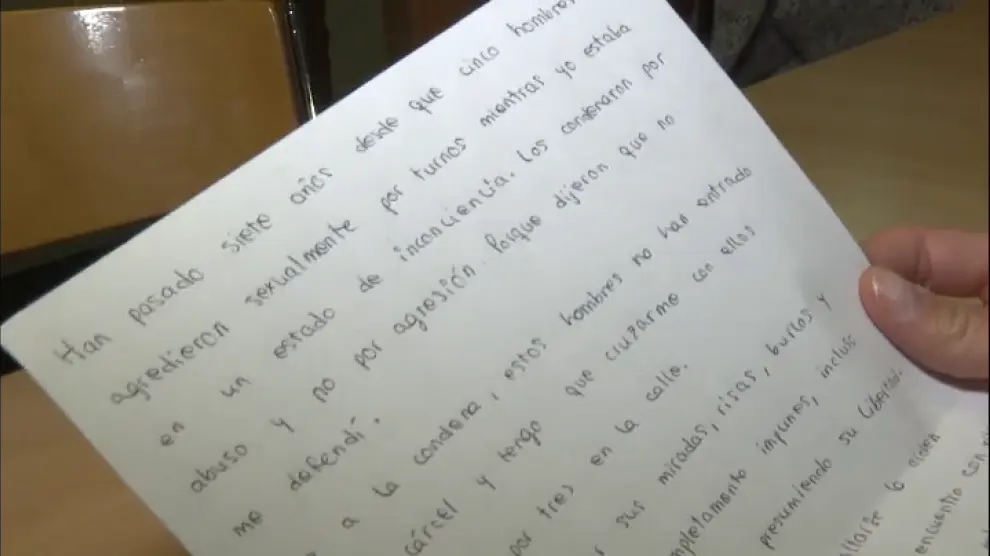 Han pasado siete años desde que cinco hombres
agredieron sexualmente por turnos mientras yo estaba
en un estado de inconciencia. Los condenaron por
abuso y no por agresión. Porque dijeron que no
me defendí.
a la condena, estos hombres no han entrado
cárcel y tengo que cruzarme con ellos
por tres en la calle.
sus miradas, risas, burlas y
impunes, incluso
presumiendo su libertad.